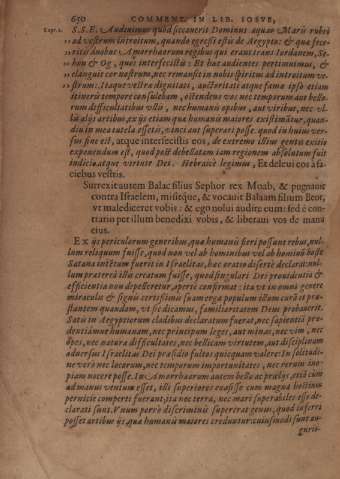 650 COMMENT. IN LIB. IOSVE,
Capr. 2. S.S.E. Audivimus quod siccaverit Dominus aquas Maris rubri
ad vestrum introitum, quando egressi estis de Aegypto: & quæ fece-
ritis duobus Amorrhæorum regibus qui erant trans Iordanem, Se-
hon & Og, quos interfecistis: Et hæc audientes pertimuimus, &
elanguit cor nostrum, nec remansit in nobis spiritus ad introitum ve-
strum: Itaque vestra dignitati, auctoritati atque fama ipso etiam
itineris tempore consulebam, ostendens vos nec temporum aut bello-
rum difficultatibus ullis, nec humanis opibus, aut viribus, nec ul-
lis aliis artibus, ex iis etiam quæ humanis maiores existimantur, quan-
diu in mea tutela essetis, vinci aut superari posse. quod in huius ver-
sus fine est, atque interfecistis vos, de extremo illius gentis exitio
exponendum est, quod post debellatam iam regionem absolutum fuit
indicio atque virtute Dei. Hebraicè legimus, Et delevi eos à fa-
ciebus vestris.
Surrexit autem Balac filius Sephor rex Moab, & pugnavit
contra Israelem, misitque, & vocavit Balaam filium Beor,
vt malediceret vobis: & ego nolui audire eum: sed è con-
trario per illum benedixi vobis, & liberavi vos de manu
eius.
Ex iis periculorum generibus, quæ humanis fieri possunt rebus, nul-
lum reliquum fuisse, quod non vel ab hominibus vel ab homini hoste
Satana intentatum fuerit in Israelitas, hæc oratio disertè declarat: nul-
lum præterea illis creatum fuisse, quod singulari Dei providentia &
efficientia non depelleretur, apertè confirmat: ita vt in omni genere
miraculis & signis certissimis suam erga populum illum curam præ-
stantem quandam, vt sic dicamus, familiaritatem Deus probaverit.
Satis in Aegyptiorum cladibus declaratum fuerat, nec sapientia pru-
dentiamve humanam, nec principum leges, aut minas, nec vim, nec
opes, nec natura difficultates, nec bellicam virtutem, aut disciplinam
adversus Israelitas Dei præsidio fultos quicquam valere: In solitudi-
ne vero nec locorum, nec temporum importunitates, nec rerum ino-
piam nocere posse. In Amorrhæorum autem bello ac prælijs, etsi cum
ad manus ventum esset, illi superiores evasisse cum magna hostium
pernicie comperti fuerant; ita nec terra, nec mari superabiles esse de-
clarati sunt. Vnum porrò discriminis supererat genus, quod inferri
posset artibus iis, quæ humanis maiores creduntur: cuiusmodi sunt au-
gurio-